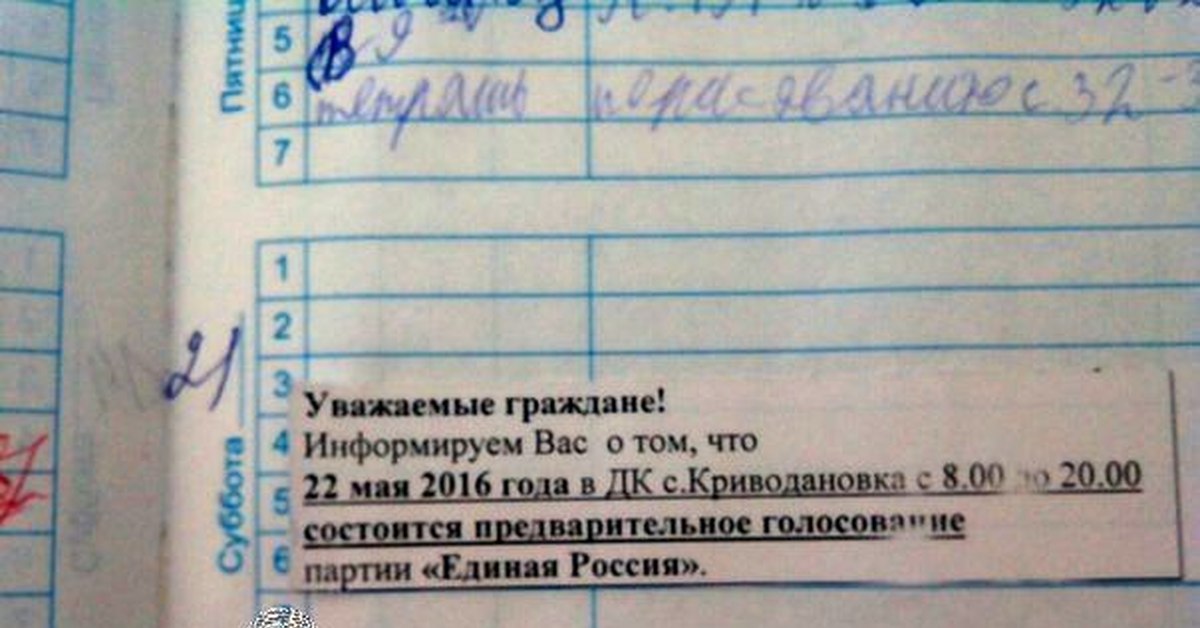 Пятница
5
В
6
тетрадь по рисованию с 32
7
1
2
21
3
Уважаемые граждане!
4 Информируем Вас о том, что
5 22 мая 2016 года в ДК с.Криводановка с 8.00 до 20.00
состоится предварительное голосование
6 партии «Единая Россия».
Суббота